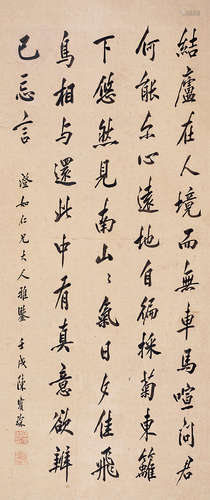 結廬在人境而無車馬喧問君
何能尔心遠地自徧採菊東籬
下悠然見南山〻氣日夕佳飛
鳥相与還此中有真意欲辨
已忘言
澄如仁兄大人雅鑒 壬戌陳寶琛